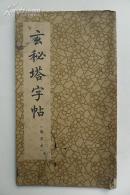 玄秘塔字帖